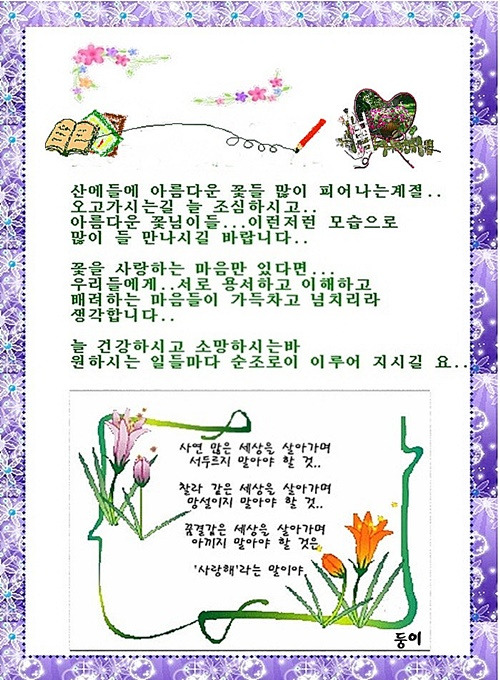 산에들에 아름다운 꽃들 많이 피어나는계절..
오고가시는길 늘 조심하시고..
아름다운 꽃님이들...이런저런 모습으로
많이 들 만나시길 바랍니다..
꽃을 사랑하는 마음만 있다면...
우리들에게..서로 용서하고 이해하고
배려하는 마음들이 가득차고 넘치리라
생각합니다..
늘 건강하시고 소망하시는바
원하시는 일들마다 순조로이 이루어 지시길 요..
사연 많은 세상을 살아가며
서두르지 말아야 할 것..
찰라 같은 세상을 살아가며
망설이지 말아야 할 것..
꿈결같은 세상을 살아가며
아끼지 말아야 할 것은
'사랑해'라는 말이야.
둥이